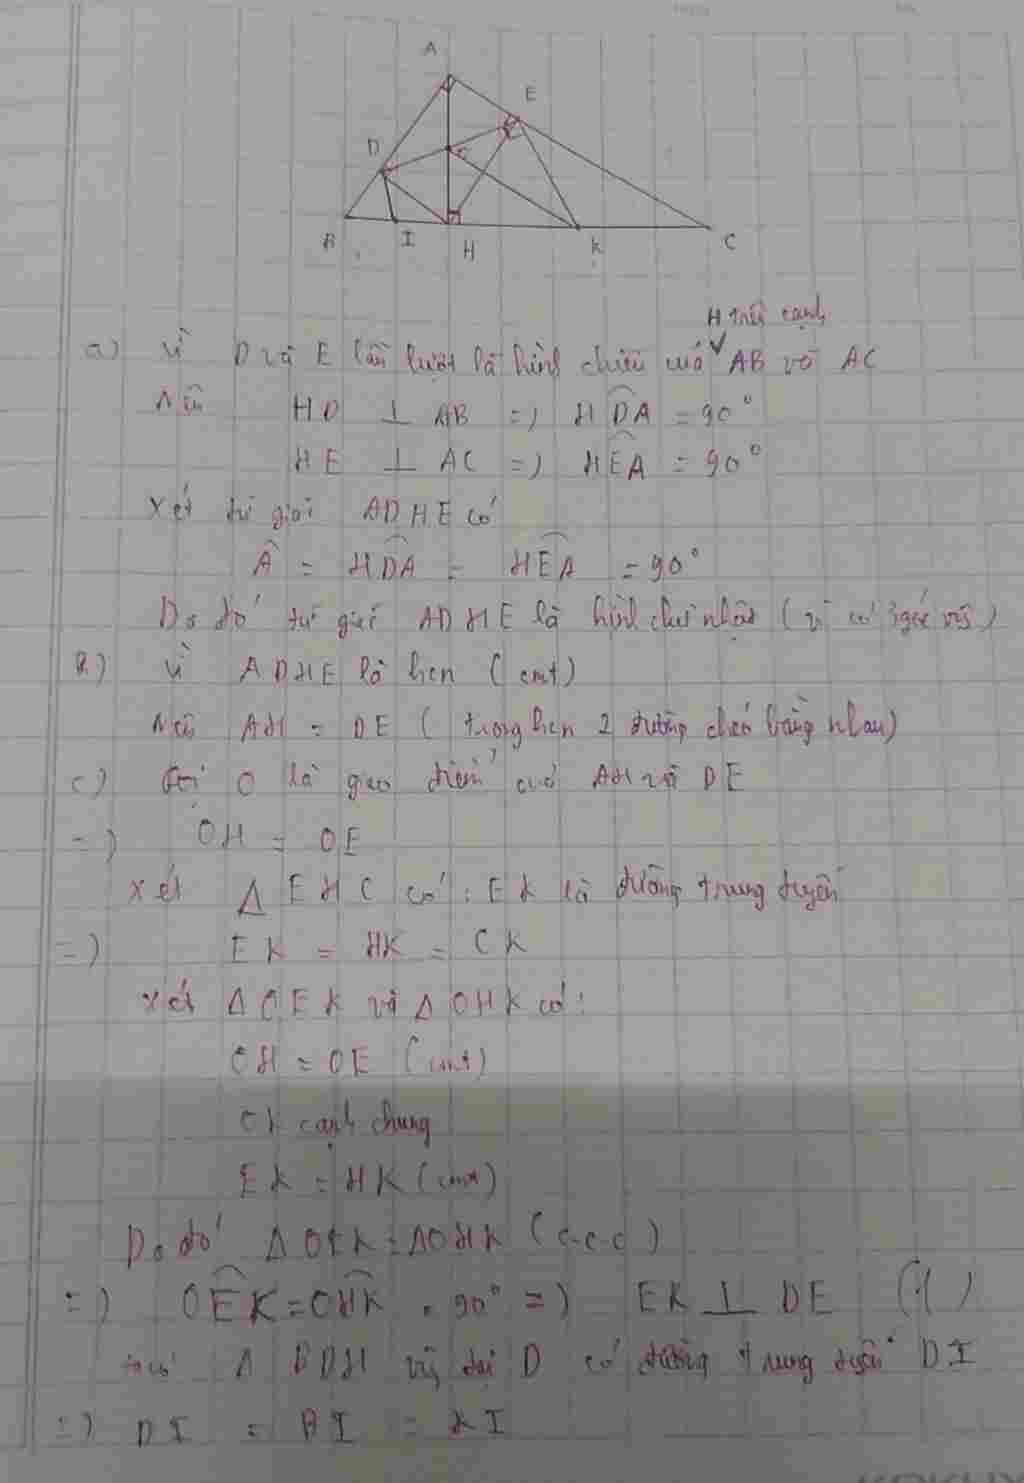 A
E
D
B
I
H
K
C
H trên cạnh
a) Vì D và E lần lượt là hình chiếu của AB và AC
Nên HD ⊥ AB => HDA = 90°
HE ⊥ AC => HEA = 90°
Xét tứ giác ADHE có
A = HDA = HEA = 90°
Do đó tứ giác ADHE là hình chữ nhật (vì có 3 góc vg)
b) Vì ADHE là hcn (cmt)
Nên AH = DE (trong hcn 2 đường chéo bằng nhau)
c) Gọi O là giao điểm của AH và DE
=) OH = OE
Xét Δ EHC có : EK là đường trung tuyến
=) EK = HK = CK
Xét Δ OEK và Δ OHK có :
OH = OE (cmt)
OK cạnh chung
EK = HK (cmt)
Do đó Δ OEK = Δ OHK (c.c.c)
=) OEK = OHK = 90° =) EK ⊥ DE (1)
ta có Δ BDH vg tại D có đường trung tuyến DI
=) DI = BI = HI